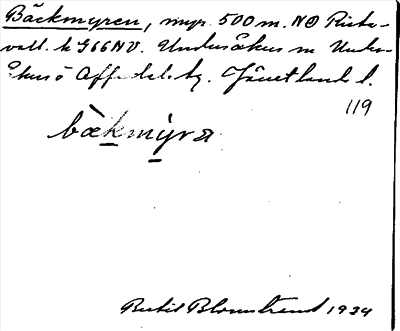 Bäckmyren, myr 500 m. NO Rista-
vall. k G66NV. Undersåkers sn Under-
såkers o Offerdals tg. Jämtlands l.
119
bækmýra
Bertil Blomstrand 1934